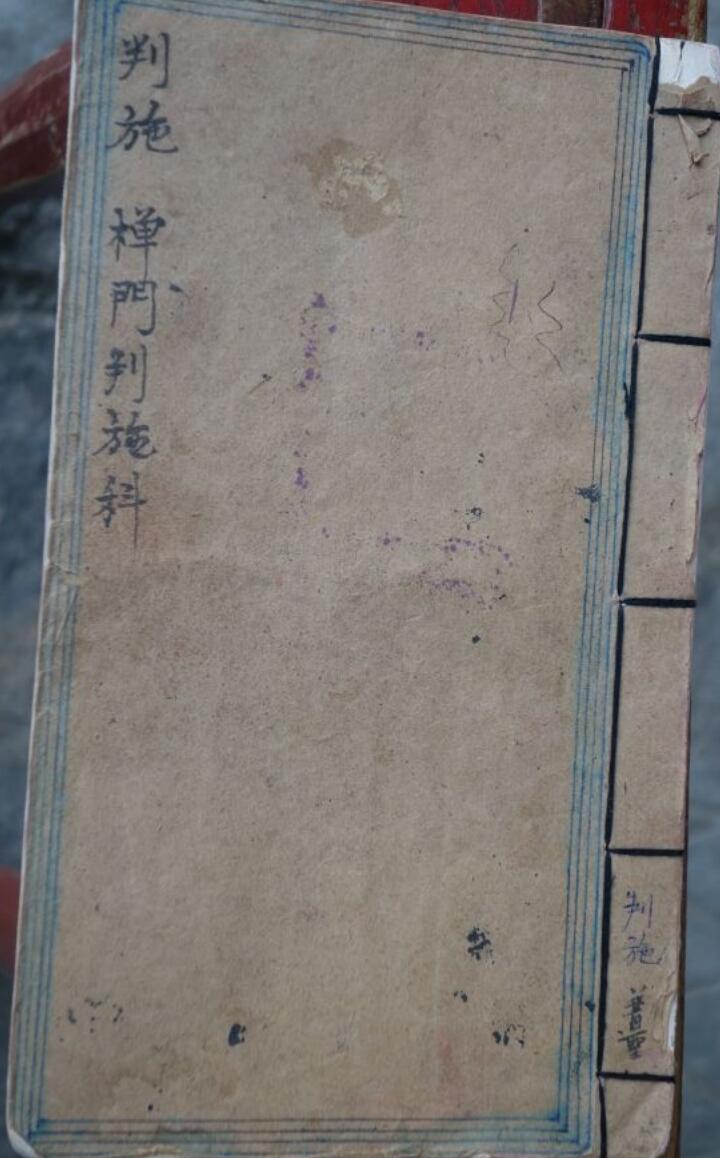 判施 禅門判施科
判施 普